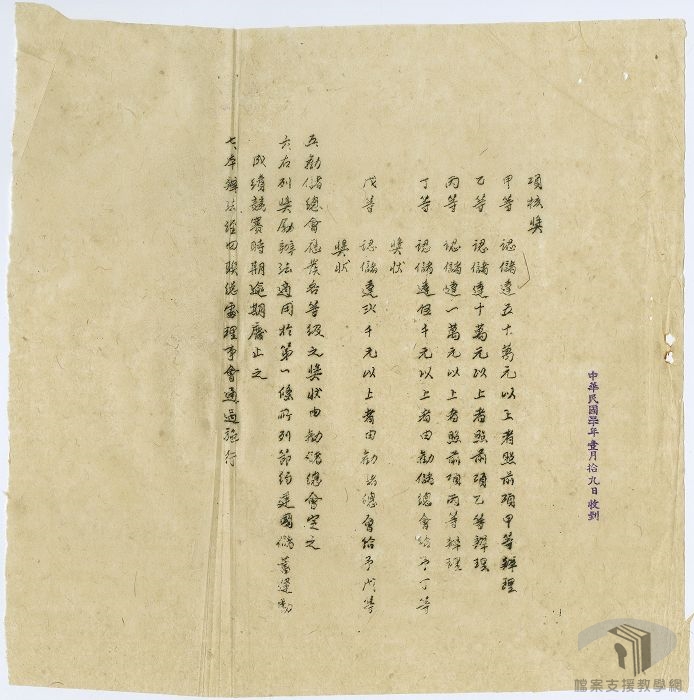 中華民國卅年壹月拾九日收到
項核獎
甲等 認儲達五十萬元以上者照前項甲等辦理
乙等 認儲達十萬元以上者照前項乙等辦理
丙等 認儲達一萬元以上者照前項丙等辦理
丁等 認儲達伍千元以上者由勸儲總會給予丁等
獎狀
戊等 認儲達弍千元以上者由勸儲總會給予戊等
獎狀
五、勸儲總會應發各等級之獎狀由勸儲總會定之
六、右列獎勵辦法適用於第一條所列節約建國儲蓄運動
成績競賽時期逾期廢止之
七、本辦法經四聯總處理事會通過施行
檔案支援教學網